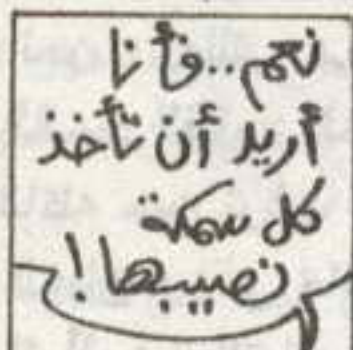 نعم..فأنا
أريد أن تأخذ
كل سمكة
نصيبها!